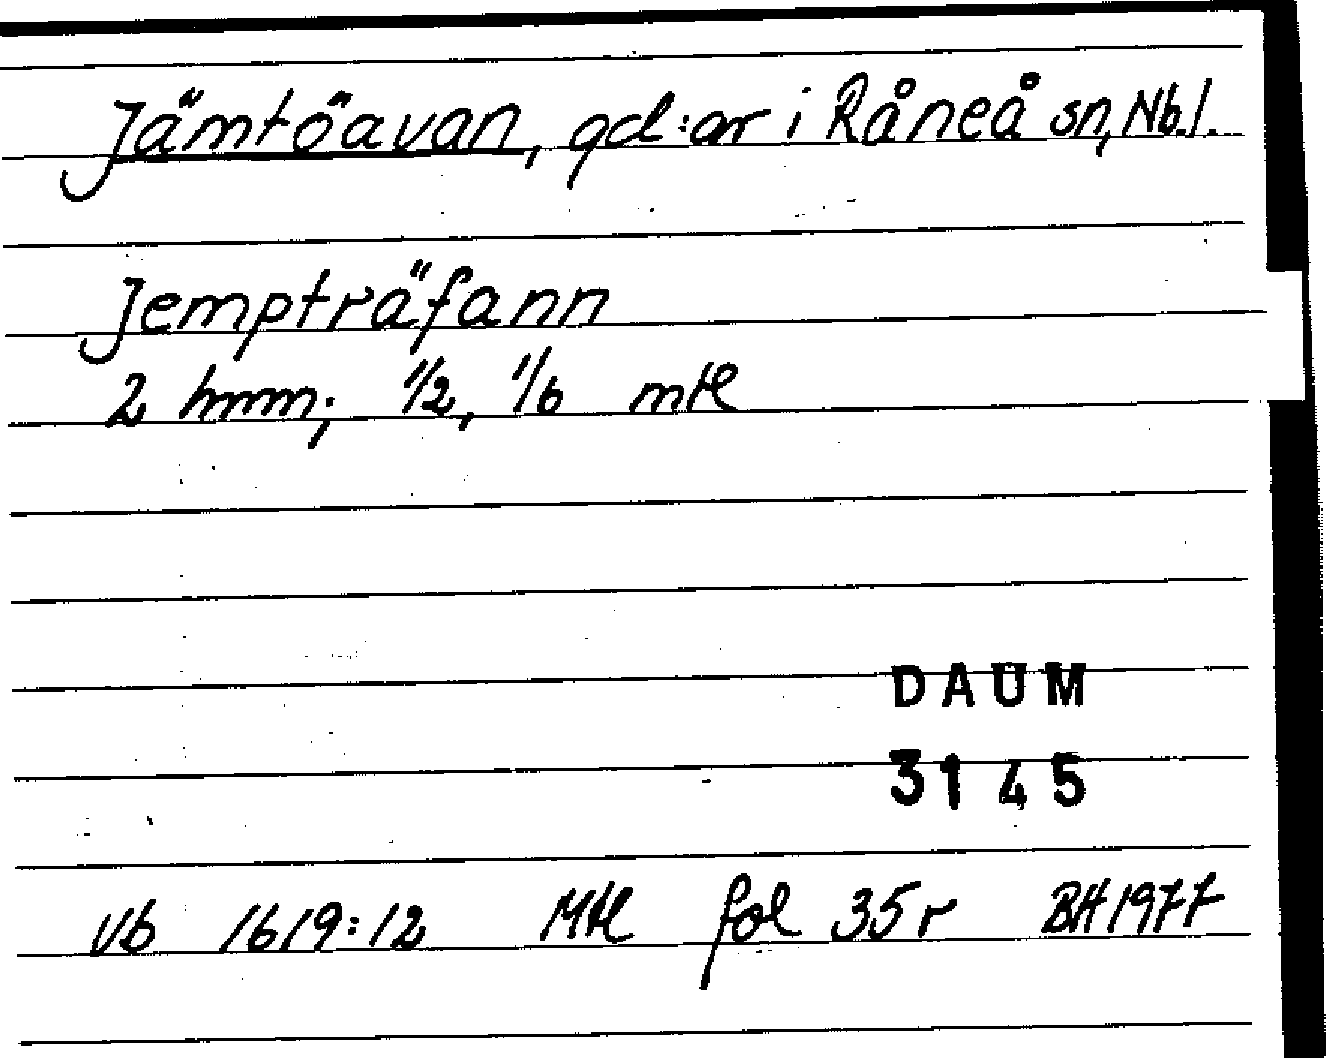 Jämtöavan, gd:ar i Råneå sn, Nb.l.
Jempträfann
2 hmm; 1/2, 1/6 mtl
DAUM
3145
Vb 1619:12 Mtl fol 35r BH 1977